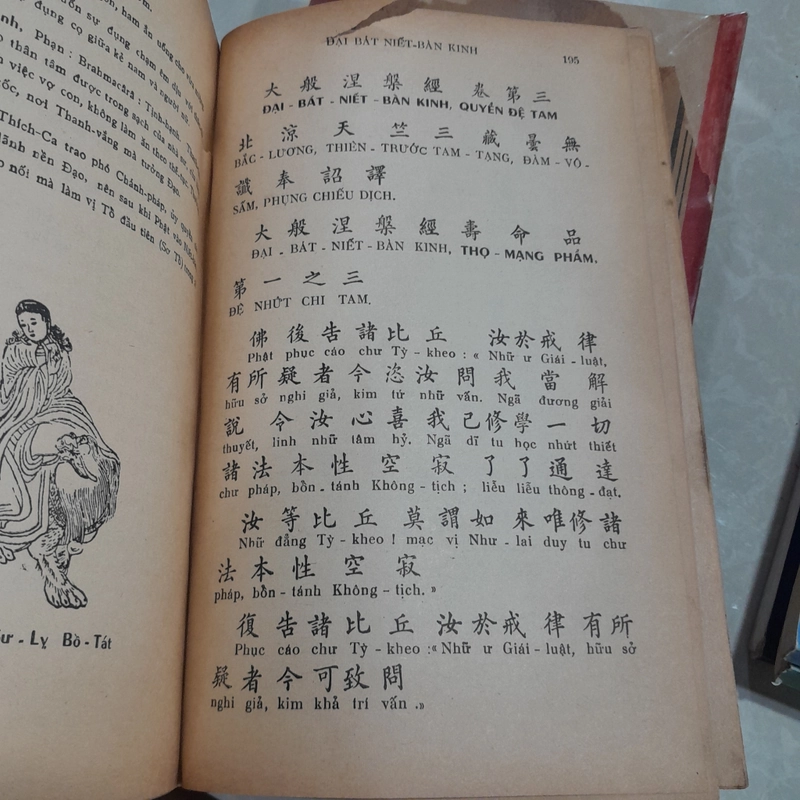 ăn uống cho
sự dụng chạm êm dịu với
dụng cọ giữa kẻ nam và người nữ.
Phạn : Brahmacârâ : Tịnh-hạnh, Thanh
thân tâm được trong sạch của nhà sư
việc vợ con, không làm ăn theo thế-tục
nơi Thanh-vắng mà tưởng Đạo.
Thích-Ca trao phó Chánh-pháp, ủy quyền
lãnh nền Đạo, nên sau khi Phật vào Niết-bàn
nối mà làm vị Tổ đầu tiên (Sơ Tổ)
Lỵ Bồ-Tát
ĐẠI BÁT NIẾT-BÀN KINH
195
大 般 涅 槃 經 卷 第 三
ĐẠI - BÁT - NIẾT - BÀN KINH, QUYỂN ĐỆ TAM
北 涼 天 竺 三 藏 曇 無
BẮC - LƯƠNG, THIÊN - TRƯỚC TAM - TẠNG, ĐÀM - VÔ -
讖 奉 詔 譯
SẤM, PHỤNG CHIẾU DỊCH.
大 般 涅 槃 經 壽 命 品
ĐẠI - BÁT - NIẾT - BÀN KINH, THỌ - MẠNG PHẨM,
第 一 之 三
ĐỆ NHỨT CHI TAM.
佛 後 告 諸 比 丘 汝 於 戒 律
Phật phục cáo chư Tỳ - kheo : « Nhữ ư Giái - luật,
有 所 疑 者 今 恣 汝 問 我 當 解
hữu sở nghi giả, kim tứ nhữ vấn. Ngã đương giải
說 令 汝 心 喜 我 已 修 學 一 切
thuyết, linh nhữ tâm hỷ. Ngã dĩ tu học nhứt thiết
諸 法 本 性 空 寂 了 了 通 達
chư pháp, bổn - tánh Không - tịch ; liễu liễu thông - đạt.
汝 等 比 丘 莫 謂 如 來 唯 修 諸
Nhữ đẳng Tỳ - kheo ! mạc vị Như - lai duy tu chư
法 本 性 空 寂
pháp, bổn - tánh Không - tịch. »
復 告 諸 比 丘 汝 於 戒 律 有 所
Phục cáo chư Tỳ - kheo :« Nhữ ư Giái - luật, hữu sở
疑 者 今 可 致 問
nghi giả, kim khả trí vấn .»